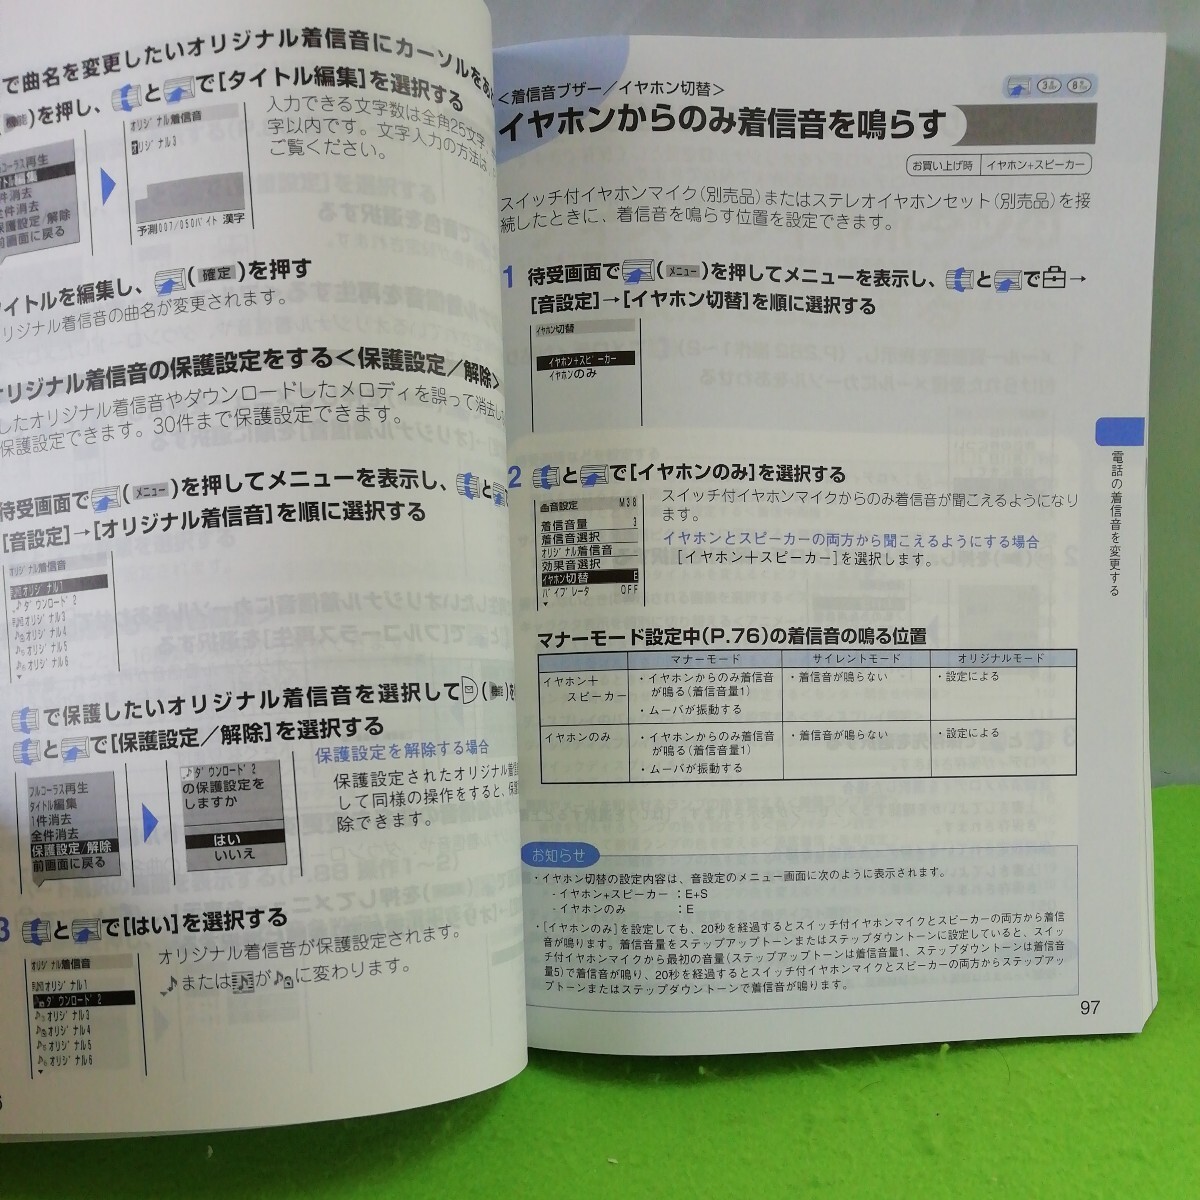 で曲名を変更したいオリジナル着信音にカーソルをあ
(機能)を押し、とで[タイトル編集]を選択する
オリジナル着信音
オリジナル3
予測007/050バイト 漢字
入力できる文字数は全角25文字、
字以内です。文字入力の方法は、
ご覧ください。
コーラス再生
トル編集
件消去
全件消去
保護設定/解除
前画面に戻る
タイトルを編集し、(確定)を押す
リジナル着信音の曲名が変更されます。
オリジナル着信音の保護設定をする<保護設定/解除>
したオリジナル着信音やダウンロードしたメロディを誤って消去し
保護設定できます。30件まで保護設定できます。
待受画面で(メニュー)を押してメニューを表示し、と
[音設定]→[オリジナル着信音]を順に選択する
オリジナル着信音
オリジナル1
♪ダウンロード2
オリジナル3
オリジナル4
オリジナル5
オリジナル6
で保護したいオリジナル着信音を選択して(機能)を
とで[保護設定/解除]を選択する
フルコーラス再生
タイトル編集
1件消去
全件消去
保護設定/解除
前画面に戻る
♪ダウンロード2
の保護設定を
しますか
はい
いいえ
保護設定を解除する場合
保護設定されたオリジナル着
して同様の操作をすると、保
除できます。
3 とで[はい]を選択する
オリジナル着信音が保護設定されます。
♪またはが♪に変わります。
オリジナル着信音
オリジナル1
ダウンロード2
オリジナル3
オリジナル4
オリジナル5
オリジナル6
6
<着信音ブザー/イヤホン切替>
イヤホンからのみ着信音を鳴らす
お買い上げ時 イヤホン+スピーカー
スイッチ付イヤホンマイク(別売品)またはステレオイヤホンセット(別売品)を接
続したときに、着信音を鳴らす位置を設定できます。
1 待受画面で(メニュー)を押してメニューを表示し、とで→
[音設定]→[イヤホン切替]を順に選択する
イヤホン切替
イヤホン+スピーカー
イヤホンのみ
2 とで[イヤホンのみ]を選択する
音設定 M38
着信音量 3
着信音選択
オリジナル着信音
効果音選択
イヤホン切替 E
バイブレータ OFF
スイッチ付イヤホンマイクからのみ着信音が聞こえるようになり
ます。
イヤホンとスピーカーの両方から聞こえるようにする場合
[イヤホン+スピーカー]を選択します。
マナーモード設定中(P.76)の着信音の鳴る位置
マナーモード サイレントモード オリジナルモード
イヤホン+スピーカー ・イヤホンからのみ着信音が鳴る(着信音量1) ・着信音が鳴らない ・設定による
・ムーバが振動する
イヤホンのみ ・イヤホンからのみ着信音が鳴る(着信音量1) ・着信音が鳴らない ・設定による
・ムーバが振動する
お知らせ
・イヤホン切替の設定内容は、音設定のメニュー画面に次のように表示されます。
-イヤホン+スピーカー :E+S
-イヤホンのみ :E
・[イヤホンのみ]を設定しても、20秒を経過するとスイッチ付イヤホンマイクとスピーカーの両方から着信
音が鳴ります。着信音量をステップアップトーンまたはステップダウントーンに設定していると、スイッ
チ付イヤホンマイクから最初の音量(ステップアップトーンは着信音量1、ステップダウントーンは着信音
量5)で着信音が鳴り、20秒を経過するとスイッチ付イヤホンマイクとスピーカーの両方からステップアッ
プトーンまたはステップダウントーンで着信音が鳴ります。
電話の着信音を変更する
97